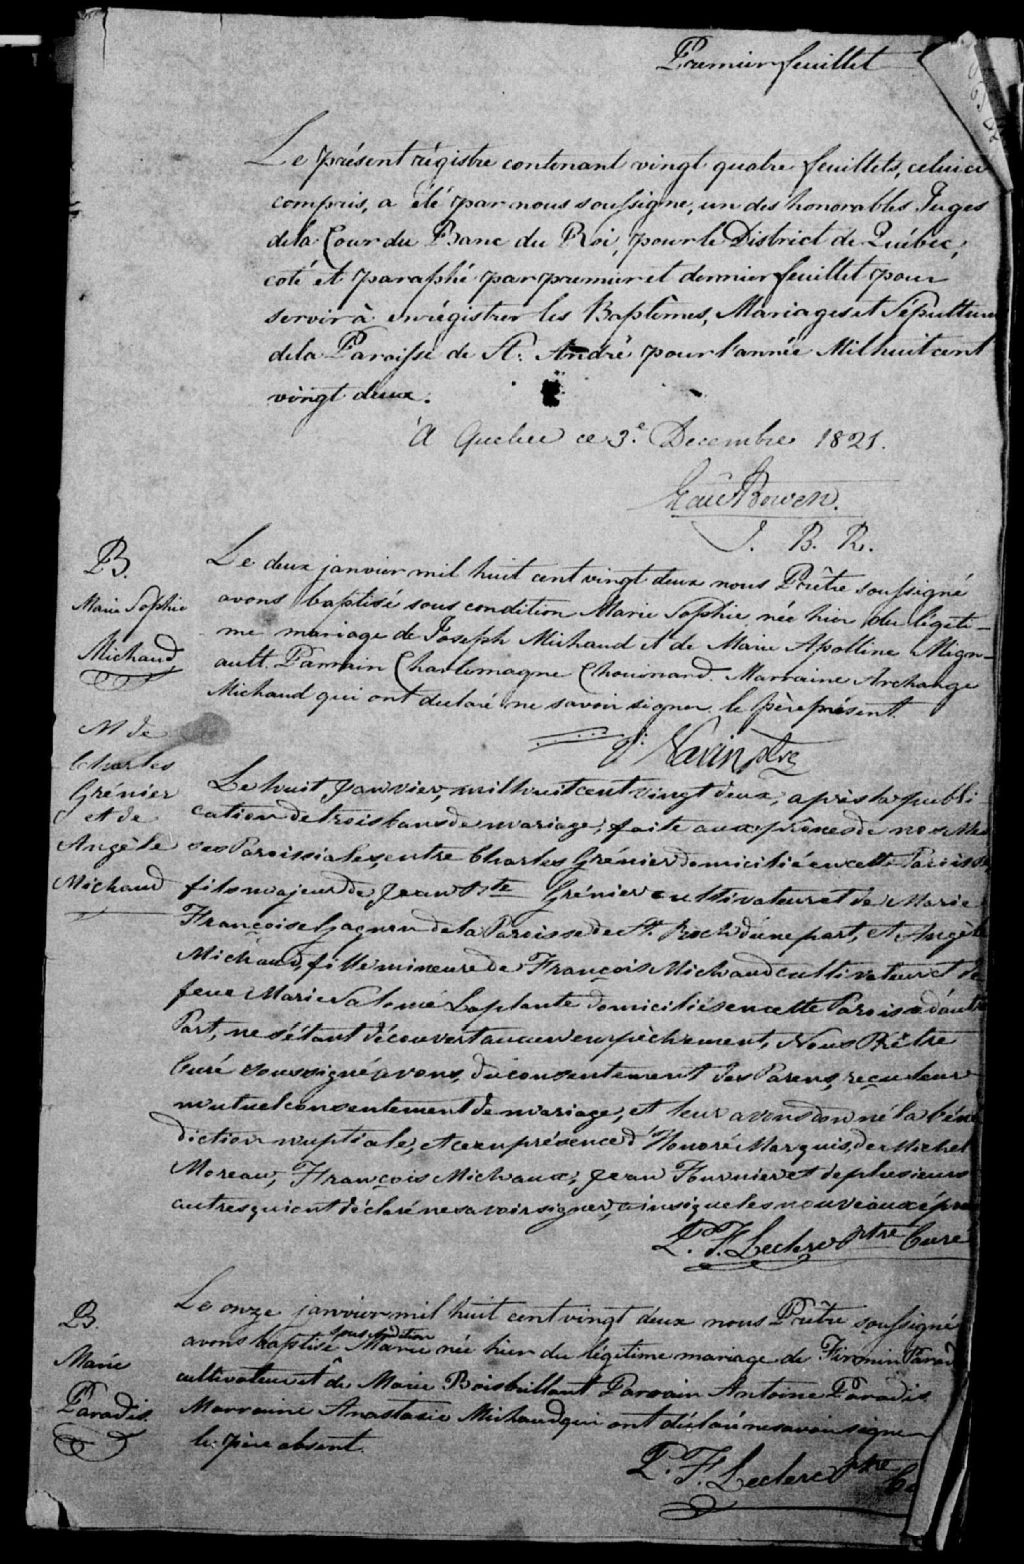 Premier feuillet
Le présent régistre contenant vingt quatre feuillets, celui ci
compris, a été par nous soussigné, un des honorables Juges
de la Cour du Banc du Roi, pour le District de Québec,
coté et paraphé par premier et dernier feuillet pour
servir à enrégistrer les Baptêmes, Mariages et Sépultures
de la Paroisse de St. André pour l'année Mil huit cent
vingt deux.
A Quebec ce 3e. Decembre 1821.
Bowen.
J. B. R.
B.
Marie Sophie
Michaud
Le deux janvier mil huit cent vingt deux nous Prêtre soussigné
avons baptisé sous condition Marie Sophie née hier du légiti-
me mariage de Joseph Michaud et de Marie Apolline Mign-
ault. Parrain Charlemagne Chouinard. Marraine Archange
Michaud qui ont declaré ne savoir signer. le père présent.
ptre
M de
Charles
Grénier
et de
Angèle
Michaud
Le huit Janvier, mil huit cent vingt deux, après la publi
cation de trois bans de mariage, faite aux prônes de nos Mes
ses Paroissiales, entre Charles Grénier domicilié en cette Paroisse,
fils majeur de Jean Bte Grénier cultivateur et de Marie
Françoise Gagnon de la Paroisse de St. Roch d'une part, et Angèle
Michaud, fille mineure de François Michaud cultivateur et de
feue Marie Salomé Laplante domiciliés en cette Paroisse d'autre
Part, ne s'étant découvert aucun empêchement, Nous Prêtre
Curé soussigné avons, du consentement des Parens, reçu leur
mutuel consentement de mariage, et leur avons donné la béné
diction nuptiale, et ce en présence d'Honoré Marquis, de Michel
Moreau, François Michaux, Jean Fournier et de plusieurs
autres qui ont déclaré ne savoir signer, ainsi que les nouveaux épou
P. F. Leclerc Ptre Curé
B.
Marie
Paradis
Le onze janvier mil huit cent vingt deux nous Prêtre soussigné
avons baptisé sous condition Marie née hier du légitime mariage de Firmin Parad
cultivateur et de Marie Boisbrillant Parrain Antoine Paradis
Marraine Anastasie Michaud qui ont déclaré ne savoir signer
le père absent.
P. F. Leclerc Ptre